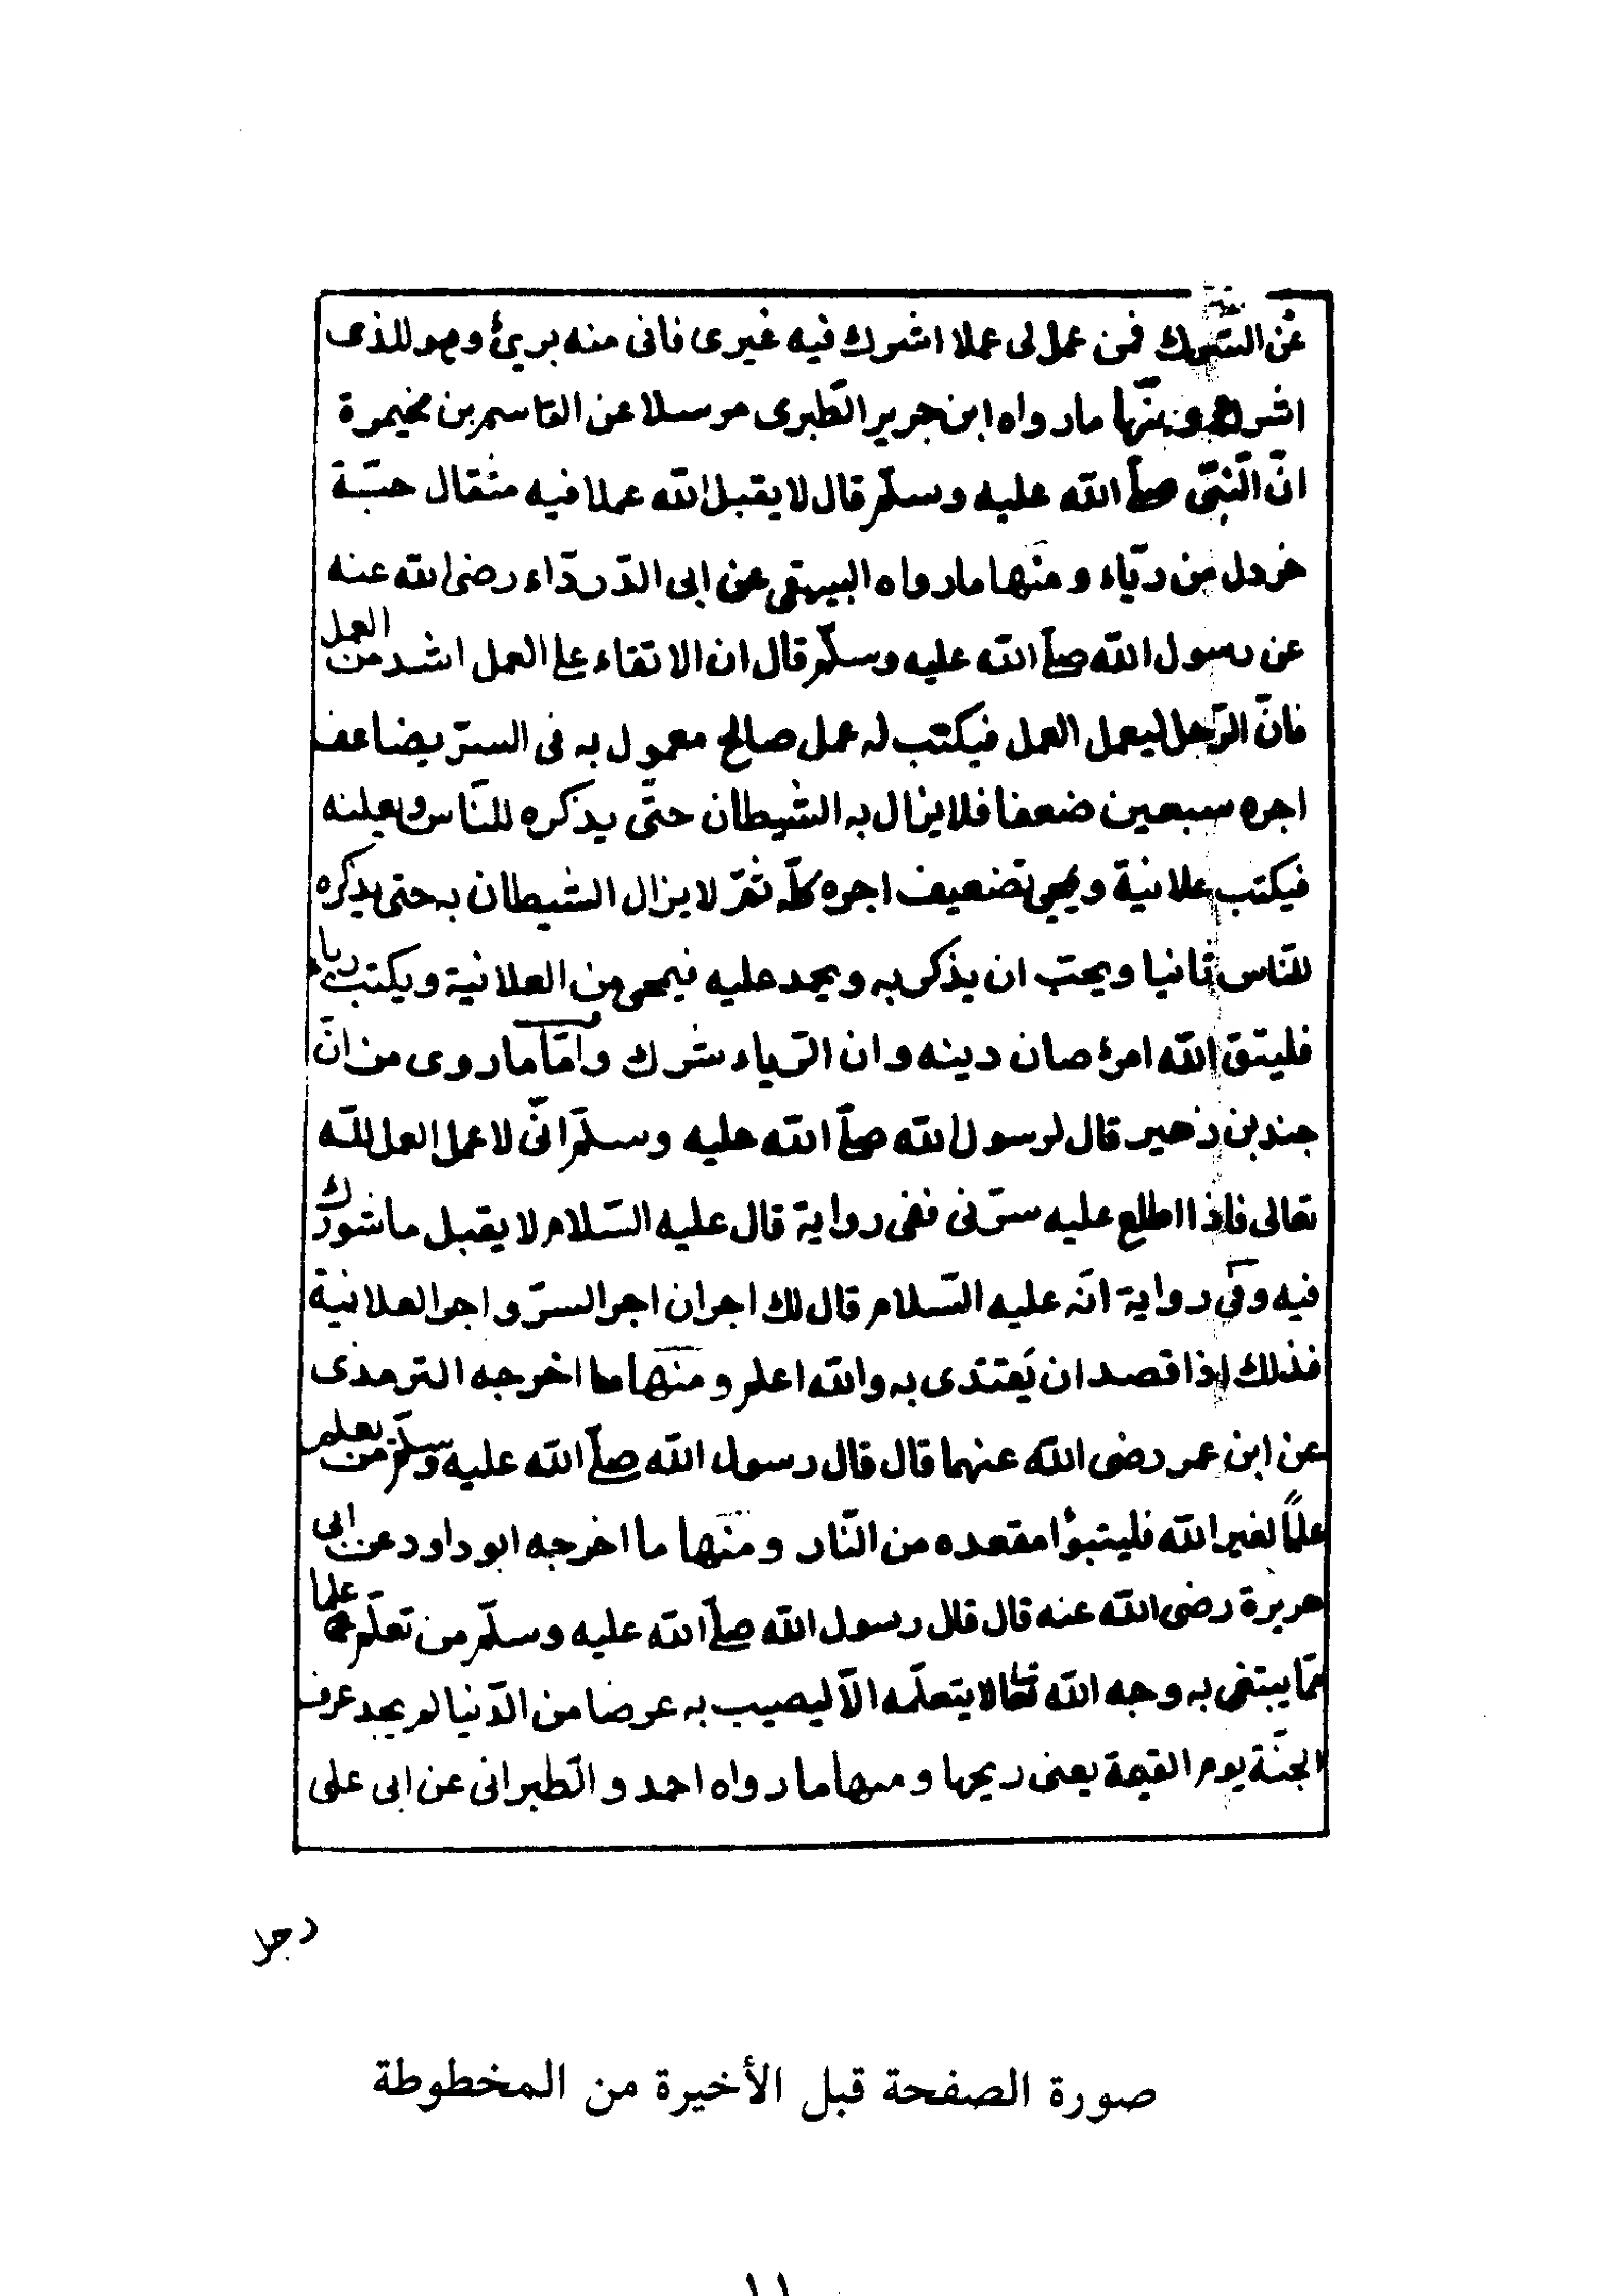 عن الشرك فمن عمل لى عملا اشرك فيه غيرى فانى منه برئ وهو للذى
اشرك ومنها مارواه ابن جرير الطبرى مرسلا عن القاسم بن مخيمرة
انّ النّبىّ صلّى الله عليه وسلّم قال لا يقبل الله عملا فيه مثقال حبّة
خردل من رياء ومنها مارواه البيهقى عن ابى الدّرداء رضى الله عنه
عن رسول الله صلّى الله عليه وسلّم قال ان الاتقاء على العمل اشد من العمل
فانّ الرّجل ليعمل العمل فيكتب له عمل صالح معمول به فى السرّ يضاعف
اجره سبعين ضعفا فلا يزال به الشّيطان حتّى يذكره للنّاس ويعلنه
فيكتب علانية ويمحى تضعيف اجره كلّه ثمّ لا يزال الشيطان به حتى يذكره
للنّاس ثانيا ويحبّ ان يذكر به ويحمد عليه فيمحى من العلانية ويكتب رياء
فليتق الله امرئ صان دينه وان الرّياء شرك وامّا ماروى من انّ
جندبن زهير قال لرسول الله صلّى الله عليه وسلّم انّى لاعمل العمل للّه
تعالى فاذا اطلع عليه سرّنى ففى رواية قال عليه السّلام لا يقبل ماشورك
فيه وفى رواية انّه عليه السّلام قال لك اجران اجر السرّ واجر العلانية
فذلك اذا قصد ان يَقتدى به والله اعلم ومنها ما اخرجه الترمذى
عن ابن عمر رضى الله عنهما قال قال رسول الله صلّى الله عليه وسلّم من تعلم
علمًا لغير الله فليتبوّأ مقعده من النّار ومنها ما اخرجه ابو داود عن ابى
هريرة رضى الله عنه قال قال رسول الله صلّى الله عليه وسلّم من تعلّم علما
ممّا يبتغى به وجه الله تعالى لا يتعلّمه الاّ ليصيب به عرضا من الدّنيا لم يجد عرف
الجنّة يوم القيمة يعنى ريحها ومنها مارواه احمد والطّبرانى عن ابى على
رجل
صورة الصفحة قبل الأخيرة من المخطوطة
١١